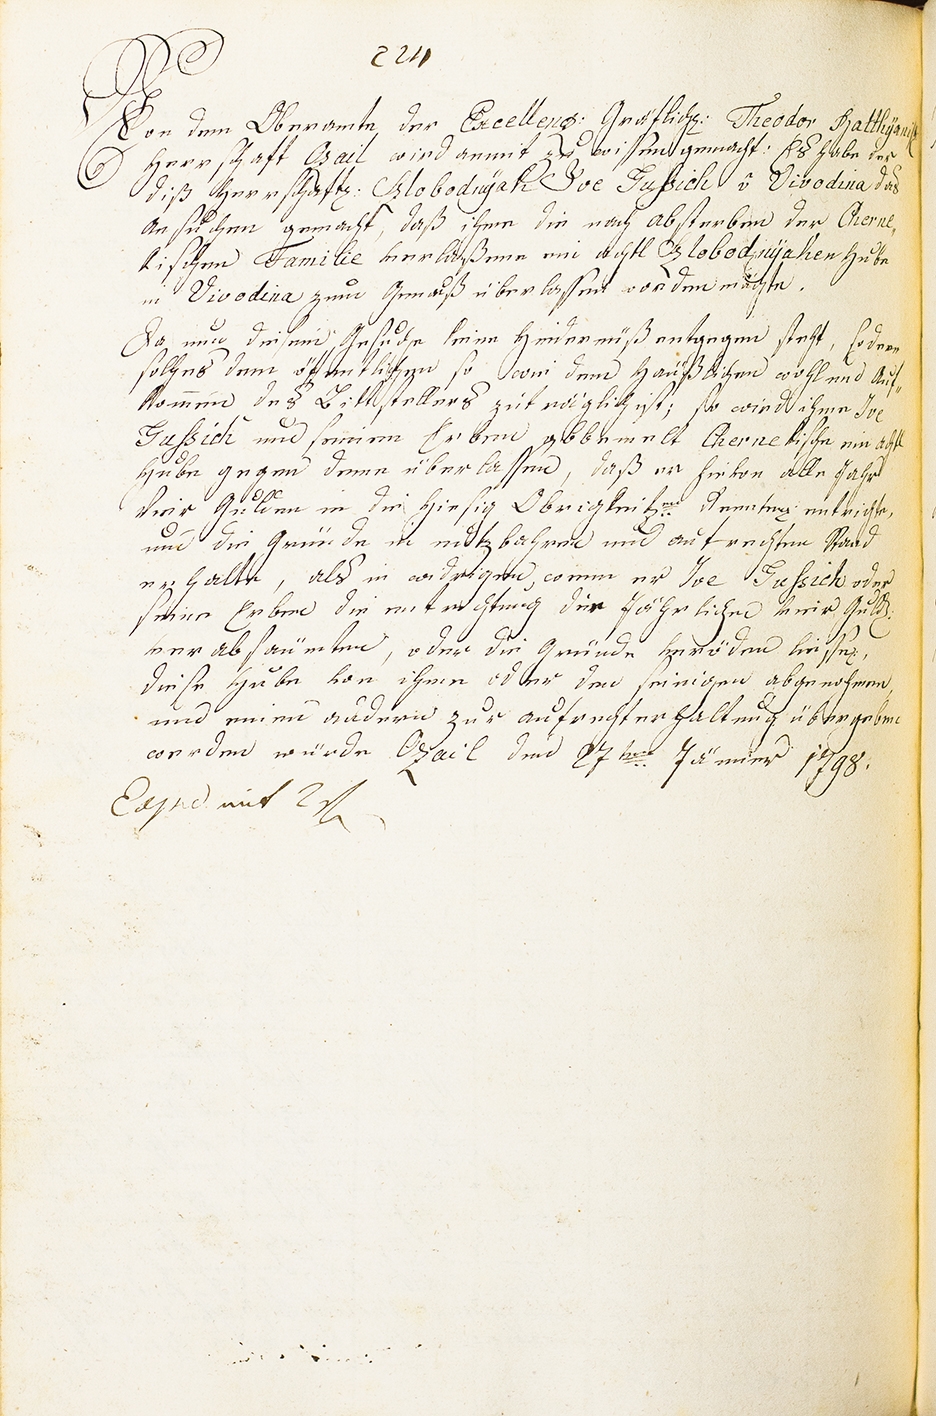 224
Von dem Oberamte der Excellenz: Gräflich: Theodor Batthyanis:
Herrschaft Ozail wird anmit zu wissen gemacht: Es habe der
diß Herrschaftl: Slobodnyak Ive Jussich v Vivodina das
Ansuchen gemacht, daß ihme die nach Absterben der Cherne,
kischen Familie verlaßene ein achtl Slobodnyaken Hube
in Vivodina zum Genuß überlassen werden möchte.
Da nun diesem Gesuche keine Hinderniß entgegen steht, sodern
solches dem öffentlichen so wie dem Häußlichen wohl und Auf-
kommen des Bittstellers zuträglich ist; so wird ihme Ive
Jussich und seinen Erben obbemelt Chernekische ein achtl
Hube gegen deme überlassen, daß er hievon alle Jahr
vier Gulden in die hiesig Obrigkeitl: Renten entrichte,
und die Gründe in nutzbahren und aufrechten Stand
erhalte, als in widrigen, wenn er Ive Jussich oder
seine Erben die entrichtung der Jährlichen vier Guld:
verabsäumten, oder die Gründe veröden liessen,
diese Hube von ihme oder den seinigen abgenohmen,
und einem andern zur aufrechterhaltung übergeben
werden würde Ozail den 27ten Jänner 1798.
Exped. mit 2